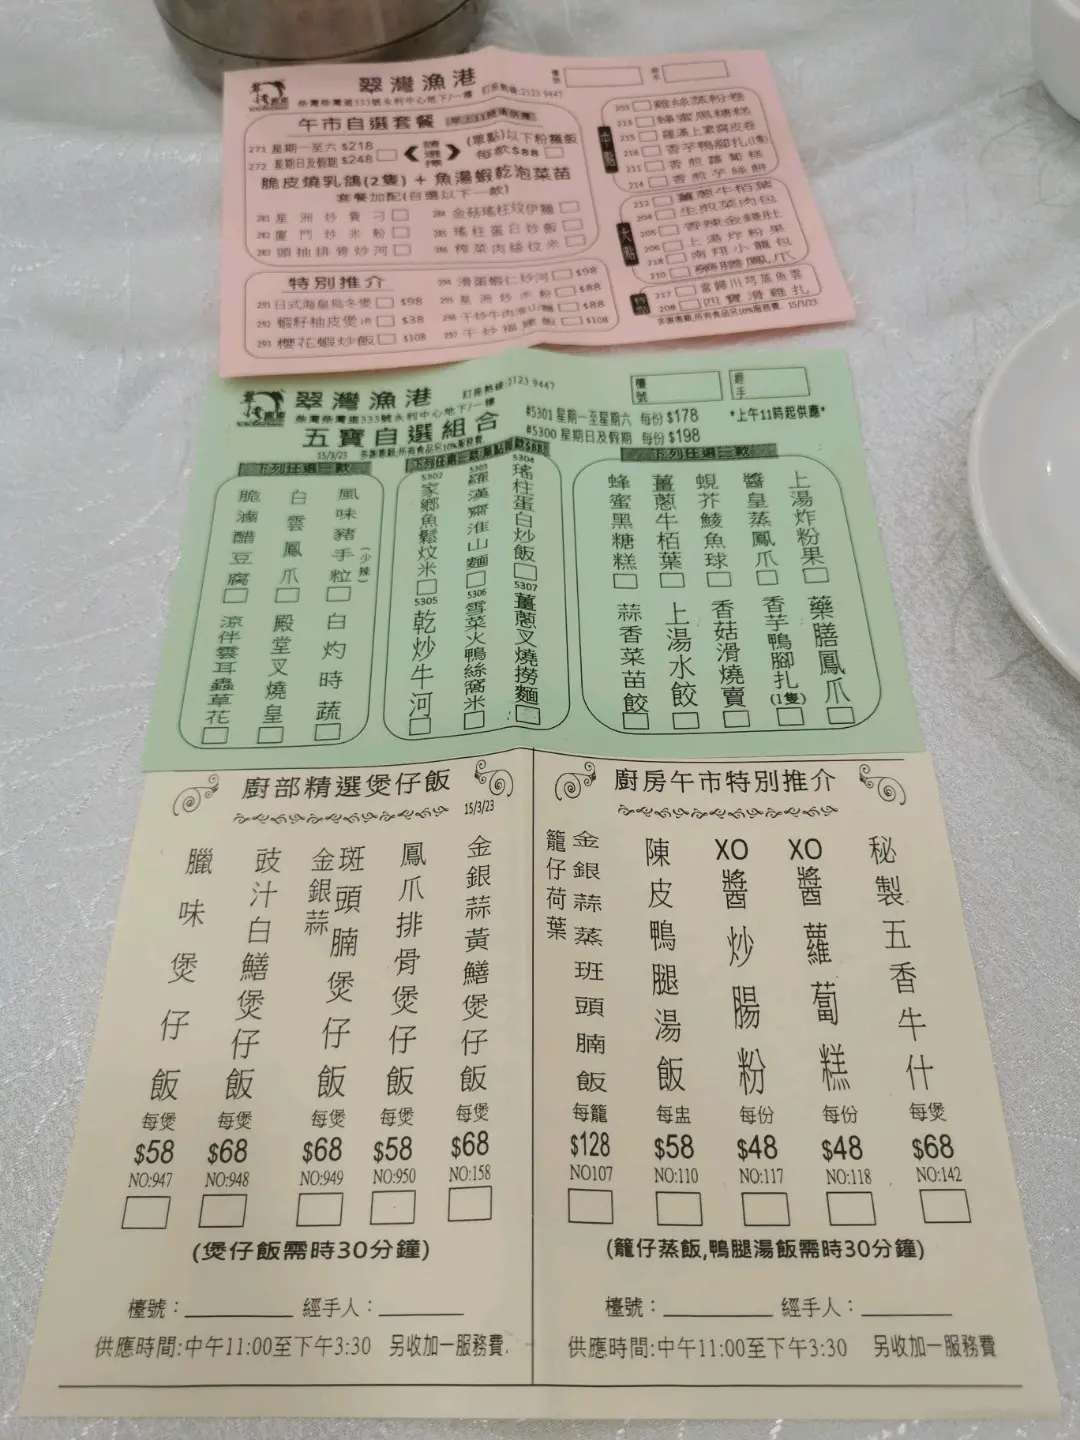 翠灣漁港
柴灣柴灣道333號永利中心地下/一樓 訂座熱線:2123 9447
午市自選套餐
271 星期一至六 $218
272 星期日及假期 $248
請選擇
(單點)以下粉麵飯
每款$88
脆皮燒乳鴿(2隻) + 魚湯蝦乾泡菜苗
套餐加配(自選以下一款)
281 星洲炒貴刁
282 廈門炒米粉
283 頭抽排骨炒河
284 金菇瑤柱炆伊麵
285 瑤柱蛋白炒飯
286 榨菜肉絲炆米
特別推介
291 日式海皇烏冬煲 $98
292 蝦籽柚皮煲 $38
293 櫻花蝦炒飯 $108
294 滑蛋蝦仁炒河 $98
295 星洲炒米粉 $88
296 干炒牛肉淮山麵 $88
297 干炒福建飯 $108
中點
203 雞絲蒸粉卷
213 蜂蜜黑糖糕
215 羅漢上素腐皮卷
216 香芋鴨腳扎(1隻)
211 香煎蘿蔔糕
214 香煎芋絲餅
大點
212 薑蔥牛栢葉
204 生煎菜肉包
205 香辣金錢肚
206 上湯炸粉果
218 南翔小籠包
210 藥膳鳳爪
特點
217 當歸川芎蒸魚雲
208 四寶滑雞扎
多謝惠顧,所有食品另10%服務費 15/3/23
翠灣漁港
訂座熱線:2123 9447
柴灣柴灣道333號永利中心地下/一樓
五寶自選組合
15/3/23 多謝惠顧,所有食品另10%服務費
檯號
經手
#5301 星期一至星期六 每份 $178 *上午11時起供應*
#5300 星期日及假期 每份 $198
下列任選三款
脆滷醋豆腐
白雲鳳爪
風味豬手粒(小辣)
涼伴雲耳蟲草花
殿堂叉燒皇
白灼時蔬
5302 家鄉魚鬆炆米
5303 羅漢齋淮山麵
5304 瑤柱蛋白炒飯
5305 乾炒牛河
5306 雪菜火鴨絲窩米
5307 薑蔥叉燒撈麵
下列任選三款
蜂蜜黑糖糕
薑蔥牛栢葉
蜆芥鯪魚球
醬皇蒸鳳爪
上湯炸粉果
蒜香菜苗餃
上湯水餃
香菇滑燒賣
香芋鴨腳扎(1隻)
藥膳鳳爪
廚部精選煲仔飯
15/3/23
臘味煲仔飯
每煲
$58
NO:947
豉汁白鱔煲仔飯
每煲
$68
NO:948
金銀蒜
斑頭腩煲仔飯
每煲
$68
NO:949
鳳爪排骨煲仔飯
每煲
$58
NO:950
金銀蒜黃鱔煲仔飯
每煲
$68
NO:158
(煲仔飯需時30分鐘)
檯號：________ 經手人：________
供應時間:中午11:00至下午3:30 另收加一服務費.
廚房午市特別推介
籠仔荷葉
金銀蒜蒸班頭腩飯
每籠
$128
NO107
陳皮鴨腿湯飯
每盅
$58
NO:110
XO醬炒腸粉
每份
$48
NO:117
XO醬蘿蔔糕
每份
$48
NO:118
秘製五香牛什
每煲
$68
NO:142
(籠仔蒸飯,鴨腿湯飯需時30分鐘)
檯號：________ 經手人：________
供應時間:中午11:00至下午3:30 另收加一服務費